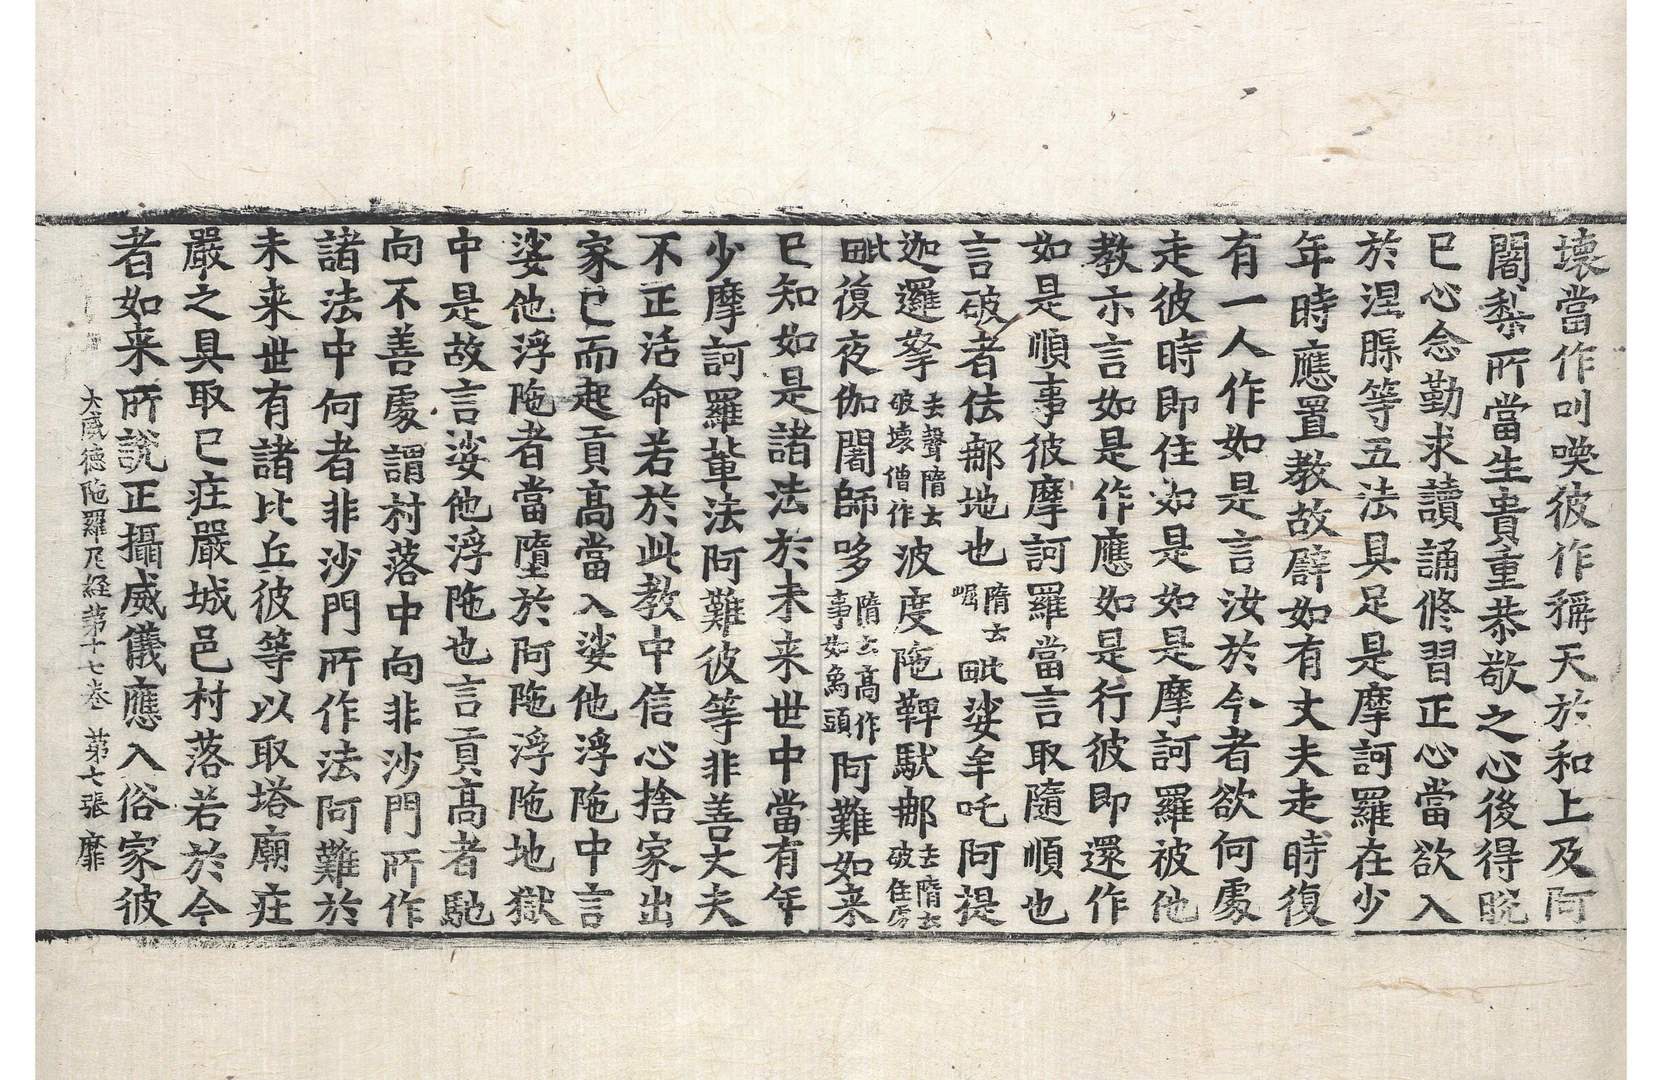 壊當作叫喚彼作稱天於和上及阿
闍梨所當生貴重恭敬之心後得晩
已心念勤求讀誦修習正心當欲入
於涅脲等五法具足是摩訶羅在少
年時應置教故譬如有丈夫走時復
有一人作如是言汝於今者欲何處
走彼時即住如是如是摩訶羅被他
教示言如是作應如是行彼即還作
如是順事彼摩訶羅當言取隨順也
言破者佉郍地也隋云崛毗婆牟吒阿提
迦邏拏去聲隋云破壊僧作波度陁鞞馱郍去隋云破住處
毗復夜伽闍師哆隋云高作事如象頭阿難如来
已知如是諸法於未来世中當有年
少摩訶羅輩法阿難彼等非善丈夫
不正活命若於此教中信心捨家出
家已而起貢高當入娑他浮陁中言
娑他浮陁者當墮於阿陁浮陁地獄
中是故言娑他浮陁也言貢高者馳
向不善處謂村落中向非沙門所作
諸法中何者非沙門所作法阿難於
未来世有諸比丘彼等以取塔廟莊
嚴之具取已莊嚴城邑村落若於今
者如来所說正攝威儀應入俗家彼
大威德陁羅尼経苐十七卷 苐七張 靡